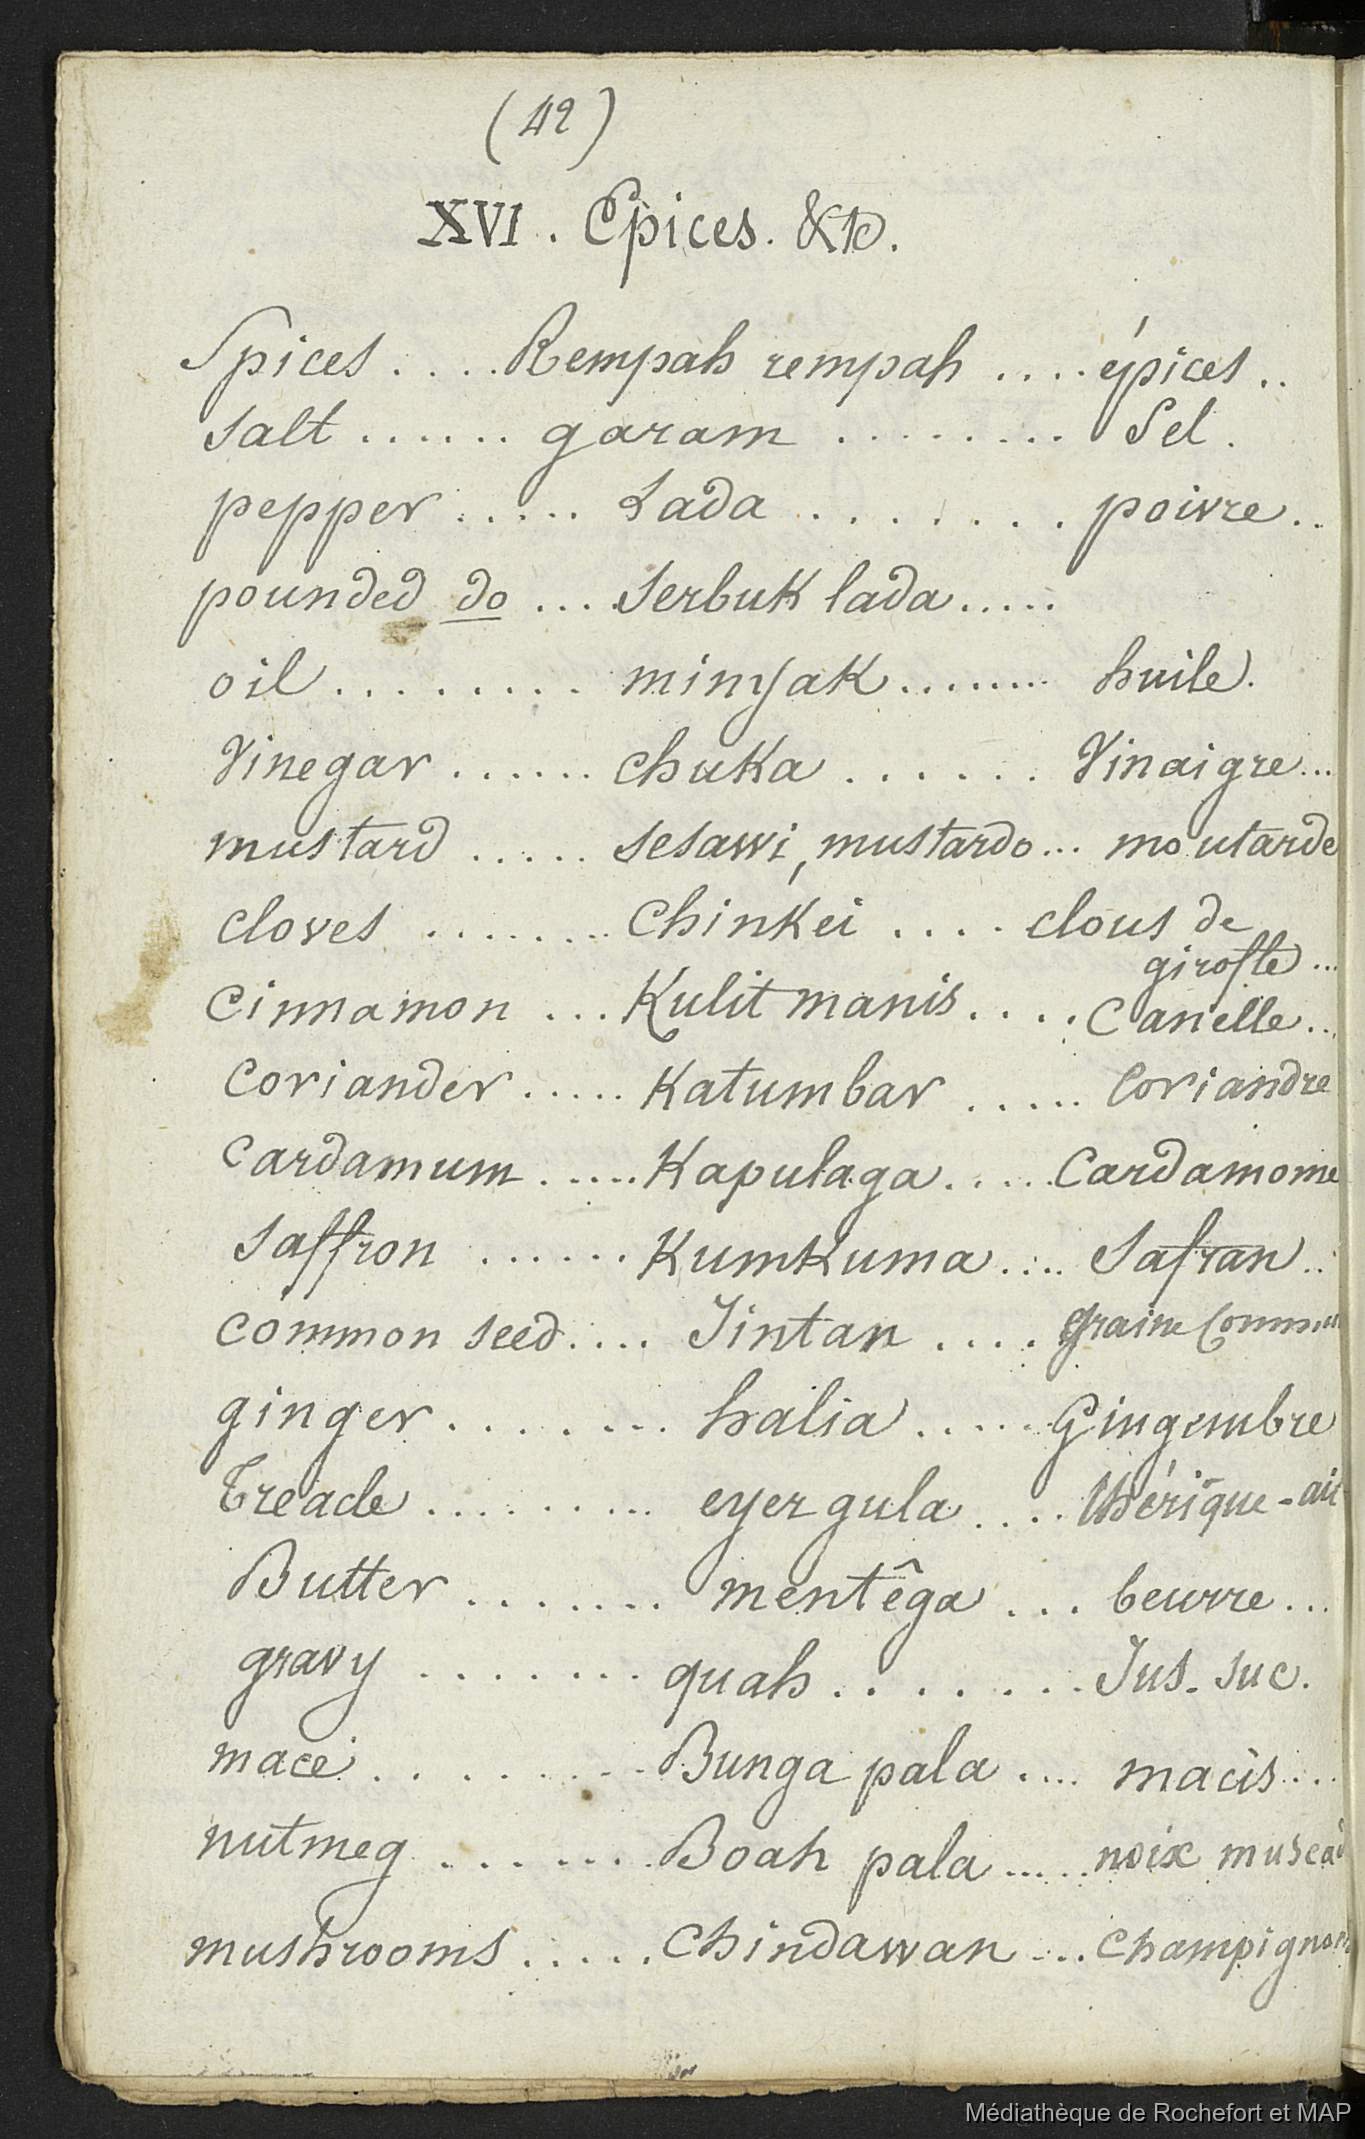 (42)
XVI. Epices. &c.
Spices .... Rempah rempah .... épices ..
salt ...... garam ........ Sel.
pepper ..... Lada ....... poivre ..
pounded do ... serbuk lada .....
oil ........ minyak ........ huile.
Vinegar ...... chuka ...... Vinaigre ...
mustard ..... sesawi, mustardo ... moutarde
cloves ....... chinkei .... clous de
girofle ...
cinnamon ... Kulit manis .... Canelle ..
coriander ..... Katumbar ..... Coriandre
cardamum ..... Kapulaga ..... Cardamome
saffron ...... Kumkuma .... Safran ..
common seed .... Jintan .... graine Commun
ginger ....... halia ..... Gingembre
Treacle ........ eyer gula .... thérique-ait
Butter ....... mentêga ... beurre ...
gravy ....... quah ....... Jus. suc.
mace ........ Bunga pala .... macis ...
nutmeg ....... Boah pala ..... noix muscad
mushrooms ..... chindawan ... champignon
Médiathèque de Rochefort et MAP